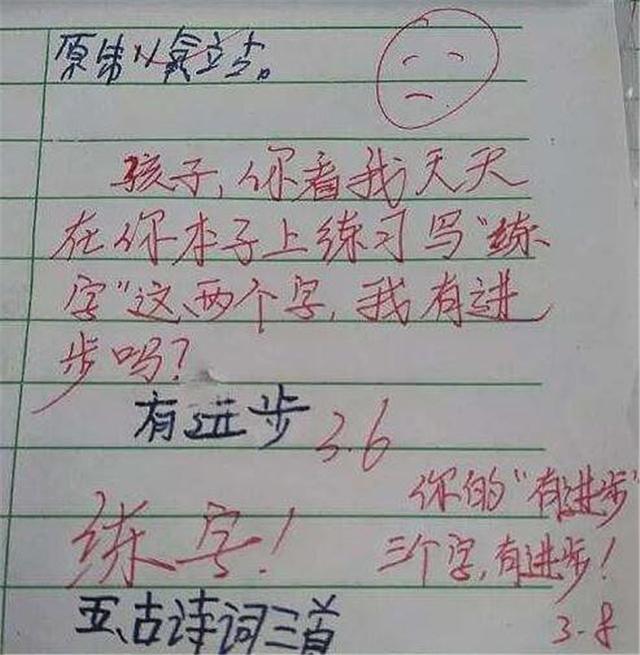 原 以氧立占。
孩子,你看我天天
在你本子上练习写“练
字”这、两个字,我有进
步吗?
有进步 3.6
你的“有进步”
三个字,有进步!
3.8
练字!
五、古诗词三首